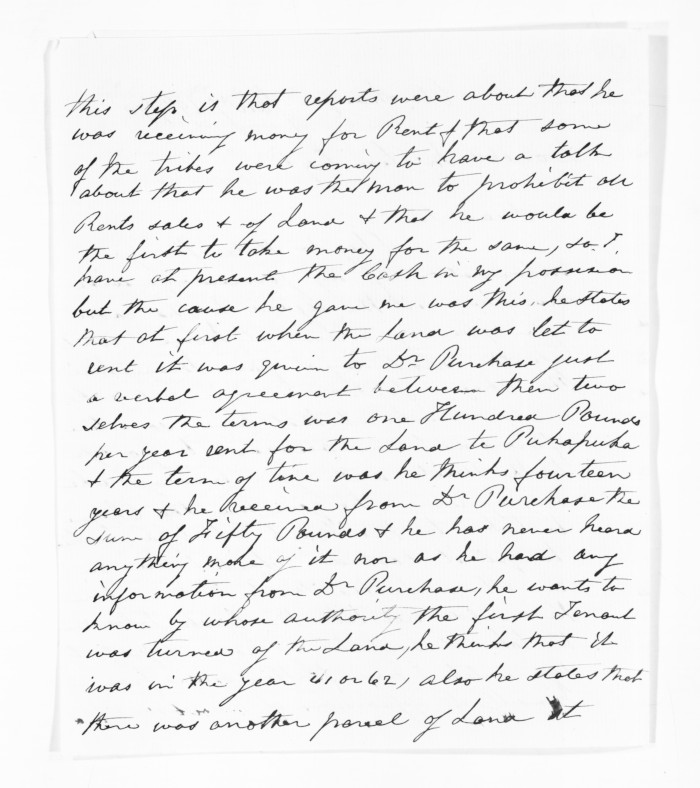 this step is that reports were about that he
was receiving money for Rent & that some
of the tribes were coming to have a talk
about that he was the man to prohibit all
Rents sales & of Land & that he would be
the first to take money for the same, so I.
have at present the Cash in my possesion
but the cause he gave me was this. he states
that at first when the Land was let to
rent it was given to Dr Purchase just
a verbal agreement between then two
selves the terms was one Hundred Pounds
per year rent for the Land te Pukapuka
& the term of time was he thinks fourteen
years & he received from Dr Purchase the
sum of Fifty Pounds & he has never heard
anything more of it nor as he had any
information from Dr Purchase, he wants to
know by whose authority the first Tenant
was turned of the Land, he thinks that it
was in the year 61 or 62, also he states that
there was another parcel of Land at